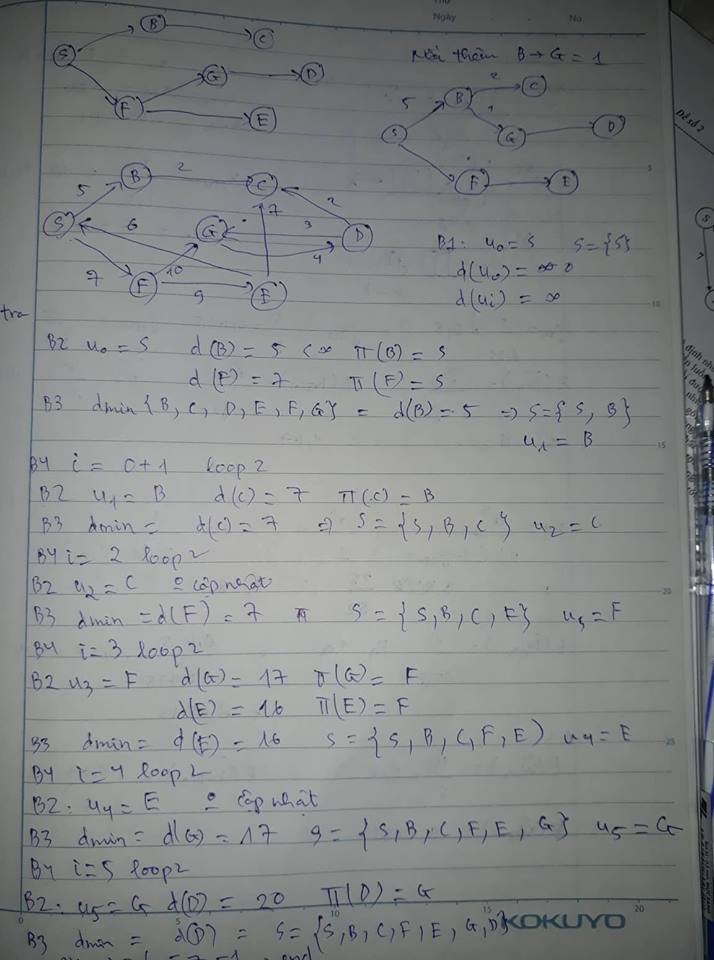 Ngày No.
S B C
G D
F E
Nối thêm B → G = 1
5 B 2 C
1
S G D
F E
5 B 2 C
S 6 G 7 3 2 D
4
7 F 10
9 E
B1: u₀ = S S = {S}
d(u₀) = 0
d(ui) = ∞
tra
B2 u₀ = S d(B) = 5 < ∞ π(B) = S
d(F) = 7 π(F) = S
B3 dmin {B, C, D, E, F, G} = d(B) = 5 ⇒ S = {S, B}
u₁ = B
B4 i = 0+1 loop 2
B2 u₁ = B d(C) = 7 π(C) = B
B3 dmin = d(C) = 7 ⇒ S = {S, B, C} u₂ = C
B4 i = 2 loop 2
B2 u₂ = C cập nhật
B3 dmin = d(F) = 7 π S = {S, B, C, F} u₃ = F
B4 i = 3 loop 2
B2 u₃ = F d(G) = 17 π(G) = F
d(E) = 16 π(E) = F
B3 dmin = d(E) = 16 S = {S, B, C, F, E} u₄ = E
B4 i = 4 loop 2
B2: u₄ = E cập nhật
B3 dmin = d(G) = 17 S = {S, B, C, F, E, G} u₅ = G
B4 i = 5 loop 2
B2: u₅ = G d(D) = 20 π(D) = G
B3 dmin = d(D) = S = {S, B, C, F, E, G, D}
KOKUYO
5
10
15
20
25
0 5 10 15 20
Đề số 2